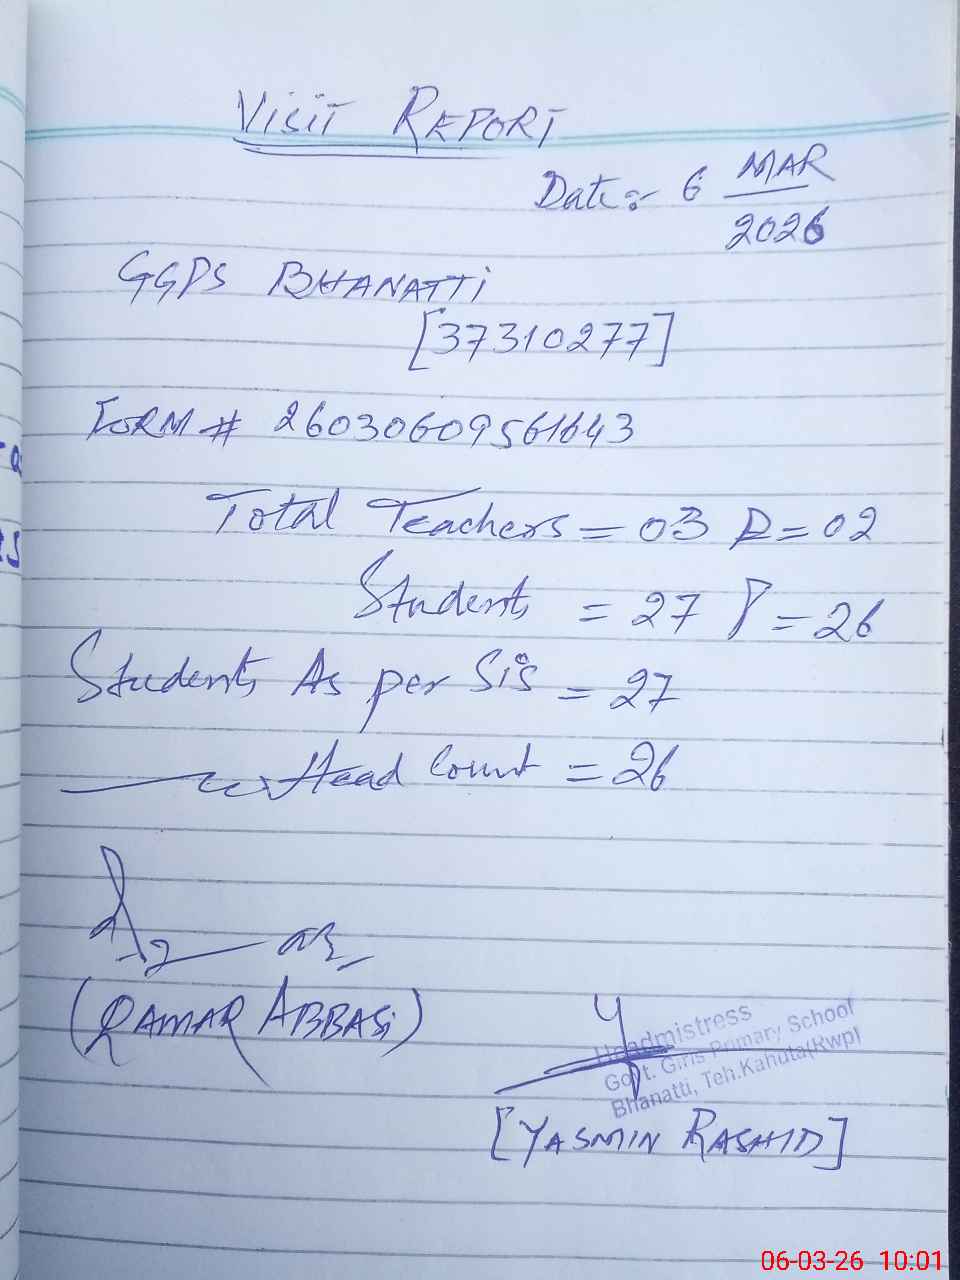 VISIT REPORT
Date:- 6 MAR
2026
GGPS BHANATTI
[37310277]
FORM # 26030609561643
Total Teachers = 03 P = 02
Students = 27 P = 26
Students As per SiS = 27
Head Count = 26
(QAMAR ABBASi)
Headmistress
Govt. Girls Primary School
Bhanatti, Teh.Kahuta(Rwp)
[YASMIN RASHID]
06-03-26 10:01